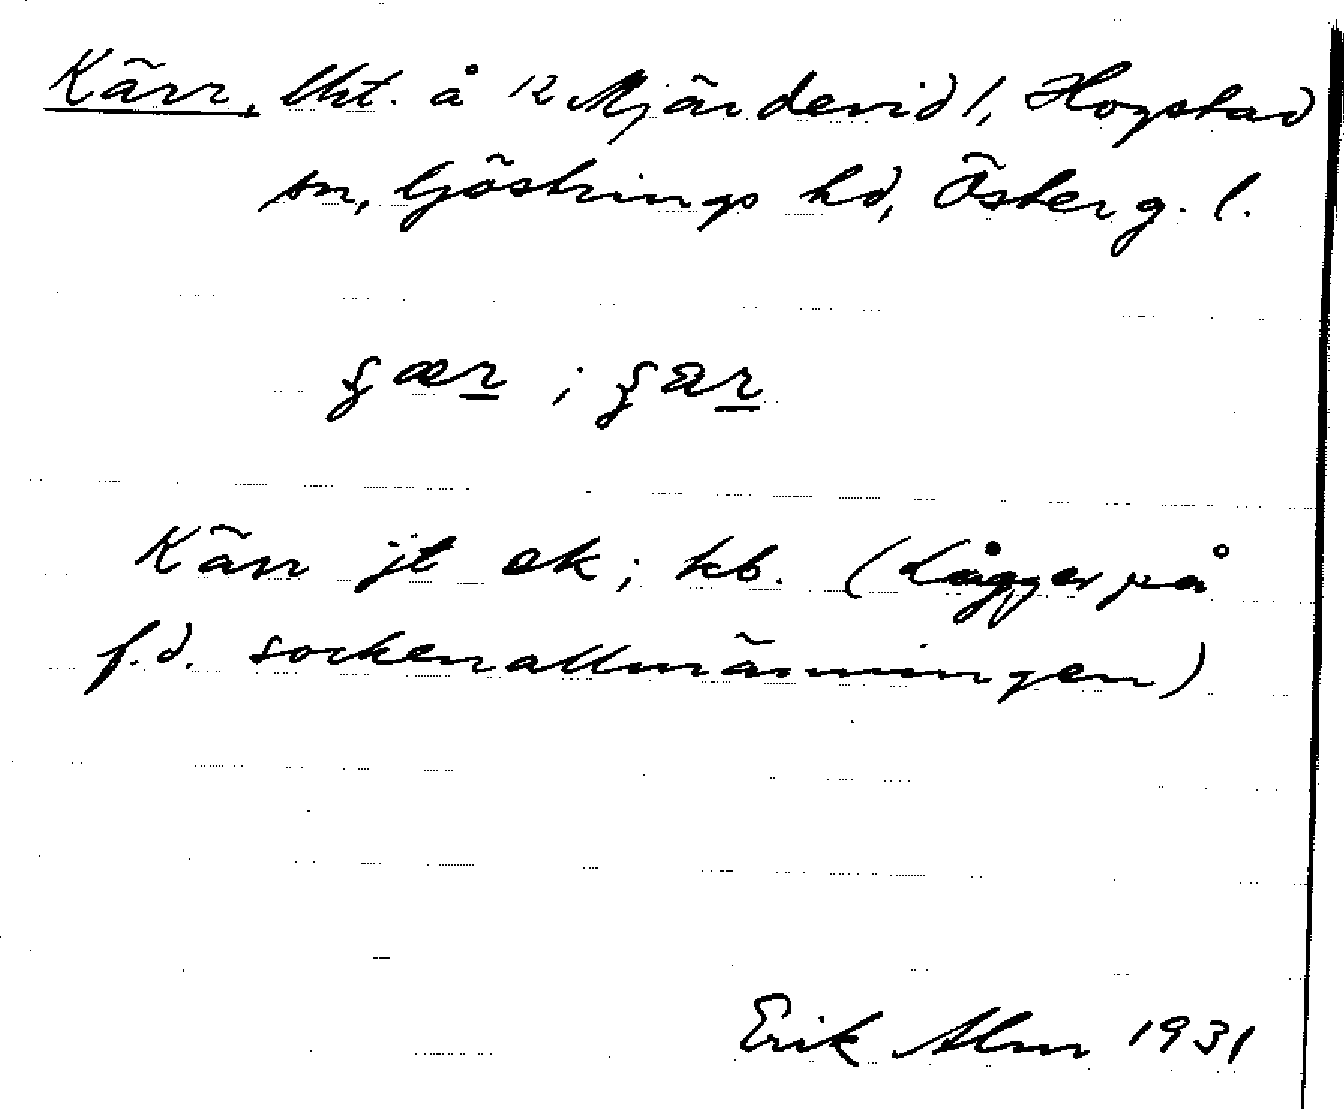 Kärr, lht. å 1/2 Mjärdevid 1, Hogstad
sn, Göstrings hd, Österg. l.
Kärr jt ek; kb. (Ligger på
f.d. sockenallmänningen)
Erik Alm 1931